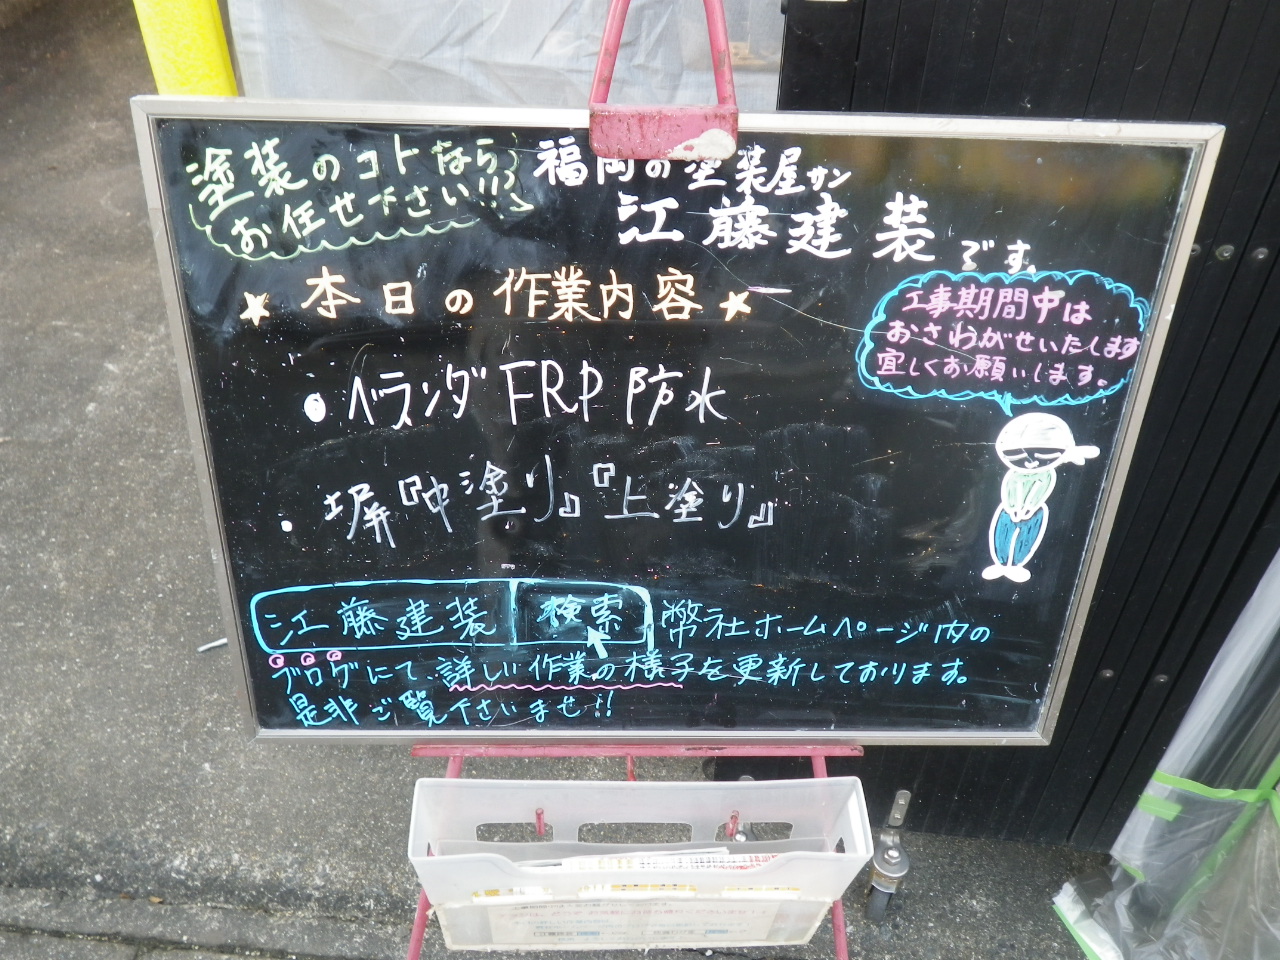 塗装のコトなら
お任せ下さい!!
福岡の塗装屋サン
江藤建装です。
★本日の作業内容★
工事期間中は
おさわがせいたします
宜しくお願いします。
・ベランダFRP防水
・塀『中塗り』『上塗り』
江藤建装 検索 弊社ホームページ内の
ブログにて、詳しい作業の様子を更新しております。
是非ご覧下さいませ!!